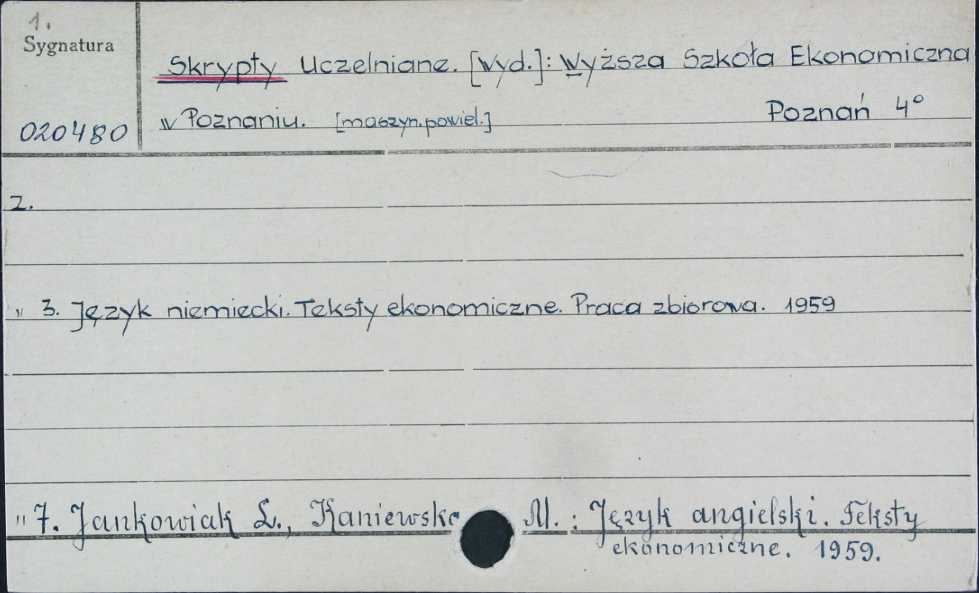 1.
Sygnatura
Skrypty Uczelniane. [Wyd.]: Wyższa Szkoła Ekonomiczna
020480 w Poznaniu. [maszyn.powiel.] Poznań 4°
2.
" 3. Język niemiecki. Teksty ekonomiczne. Praca zbiorowa. 1959
" 7. Jankowiak L., Kaniewska M. : Język angielski. Teksty
ekonomiczne. 1959.